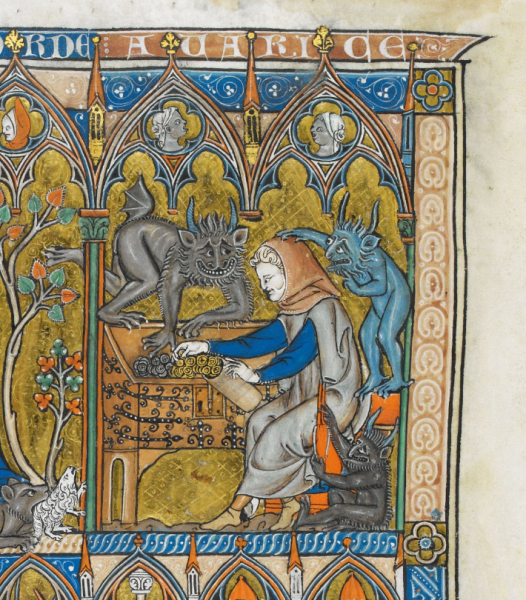 ORDE : AUARICE